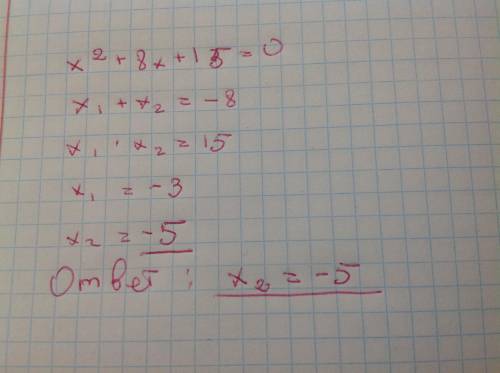 x² + 8x + 15 = 0
x₁ + x₂ = -8
x₁ · x₂ = 15
x₁ = -3
x₂ = -5
Ответ: x₂ = -5